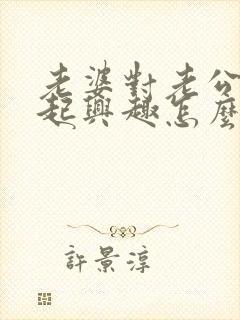 老婆對老公
起興趣怎麼
許景淳